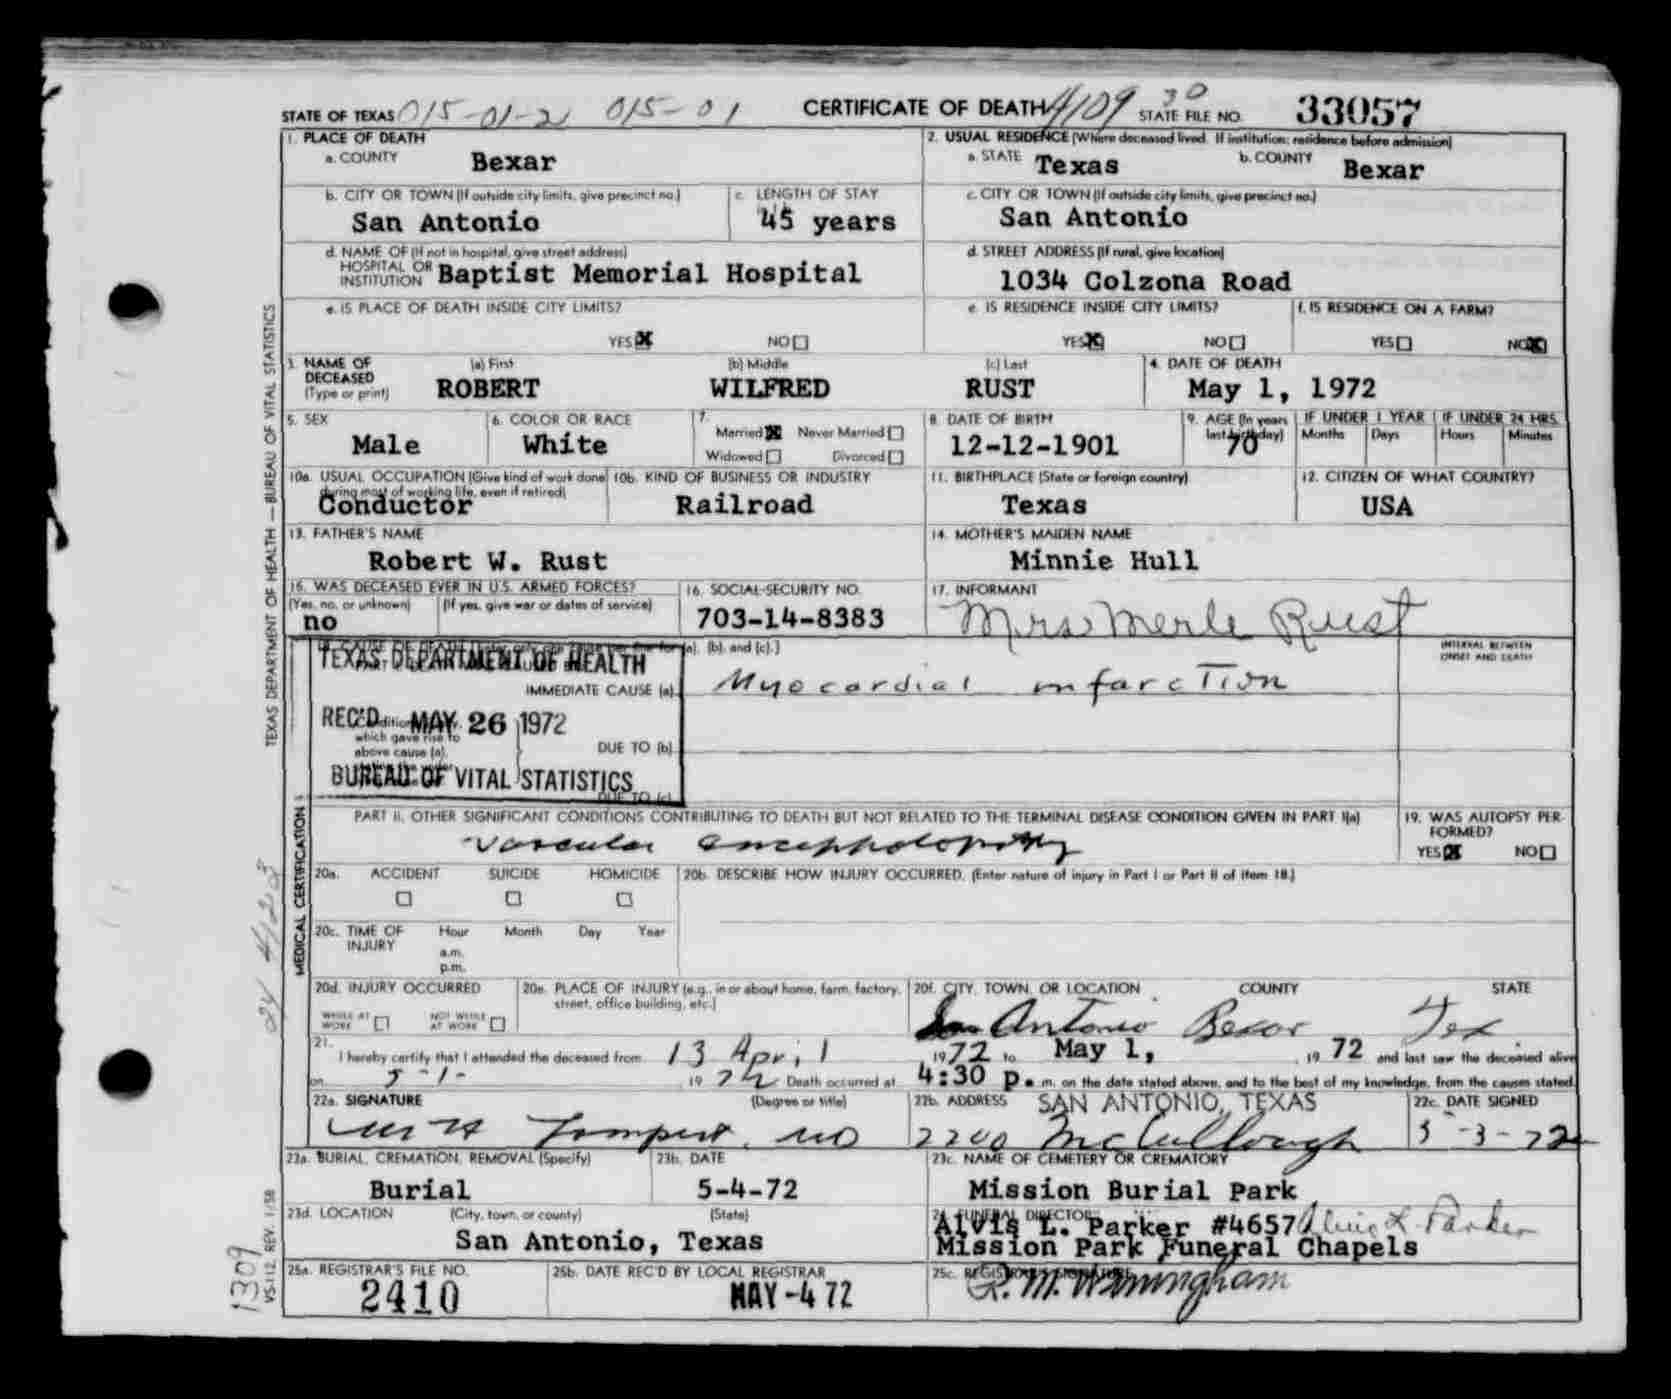 STATE OF TEXAS 015-01-2 015-01 CERTIFICATE OF DEATH 4109 30 STATE FILE NO. 33057
1. PLACE OF DEATH
a. COUNTY Bexar
2. USUAL RESIDENCE (Where deceased lived. If institution: residence before admission)
a. STATE Texas b. COUNTY Bexar
b. CITY OR TOWN (If outside city limits, give precinct no.) c. LENGTH OF STAY
San Antonio 45 years
c. CITY OR TOWN (If outside city limits, give precinct no.)
San Antonio
d. NAME OF (If not in hospital, give street address)
HOSPITAL OR
INSTITUTION Baptist Memorial Hospital
d. STREET ADDRESS (If rural, give location)
1034 Colzona Road
e. IS PLACE OF DEATH INSIDE CITY LIMITS?
YES X NO
e. IS RESIDENCE INSIDE CITY LIMITS? f. IS RESIDENCE ON A FARM?
YES X NO YES NO X
3. NAME OF DECEASED (Type or print) (a) First (b) Middle (c) Last 4. DATE OF DEATH
ROBERT WILFRED RUST May 1, 1972
5. SEX 6. COLOR OR RACE 7. Married X Never Married Widowed Divorced
Male White
8. DATE OF BIRTH 9. AGE (In years last birthday) IF UNDER 1 YEAR IF UNDER 24 HRS.
Months Days Hours Minutes
12-12-1901 70
10a. USUAL OCCUPATION (Give kind of work done during most of working life, even if retired) 10b. KIND OF BUSINESS OR INDUSTRY
Conductor Railroad
11. BIRTHPLACE (State or foreign country) 12. CITIZEN OF WHAT COUNTRY?
Texas USA
13. FATHER'S NAME 14. MOTHER'S MAIDEN NAME
Robert W. Rust Minnie Hull
15. WAS DECEASED EVER IN U.S. ARMED FORCES? 16. SOCIAL-SECURITY NO. 17. INFORMANT
(Yes, no, or unknown) (If yes, give war or dates of service)
no 703-14-8383 Mrs Merle Rust
(a), (b), and (c).] INTERVAL BETWEEN ONSET AND DEATH
TEXAS DEPARTMENT OF HEALTH
IMMEDIATE CAUSE (a) Myocardial infarction
REC'D MAY 26 1972
which gave rise to
above cause (a),
DUE TO (b)
BUREAU OF VITAL STATISTICS
DUE TO (c)
PART II. OTHER SIGNIFICANT CONDITIONS CONTRIBUTING TO DEATH BUT NOT RELATED TO THE TERMINAL DISEASE CONDITION GIVEN IN PART I(a)
Vascular encephalopathy
19. WAS AUTOPSY PERFORMED?
YES X NO
20a. ACCIDENT SUICIDE HOMICIDE 20b. DESCRIBE HOW INJURY OCCURRED. (Enter nature of injury in Part I or Part II of item 18.)
20c. TIME OF INJURY Hour Month Day Year
a.m.
p.m.
20d. INJURY OCCURRED
WHILE AT WORK NOT WHILE AT WORK
20e. PLACE OF INJURY (e.g., in or about home, farm, factory, street, office building, etc.)
20f. CITY, TOWN, OR LOCATION COUNTY STATE
San Antonio Bexar Tex
21. I hereby certify that I attended the deceased from 13 April 1972 to May 1, 1972 and last saw the deceased alive
on 5-1- 1972 Death occurred at 4:30 p.m. on the date stated above, and to the best of my knowledge, from the causes stated.
22a. SIGNATURE (Degree or title) 22b. ADDRESS SAN ANTONIO, TEXAS 22c. DATE SIGNED
MD 2200 McCullough 5-3-72
23a. BURIAL, CREMATION, REMOVAL (Specify) 23b. DATE 23c. NAME OF CEMETERY OR CREMATORY
Burial 5-4-72 Mission Burial Park
23d. LOCATION (City, town, or county) (State)
San Antonio, Texas
24. FUNERAL DIRECTOR
Alvis L. Parker #4657 Alvis L. Parker
Mission Park Funeral Chapels
25a. REGISTRAR'S FILE NO. 25b. DATE REC'D BY LOCAL REGISTRAR 25c. REGISTRAR'S SIGNATURE
2410 MAY -4 72
TEXAS DEPARTMENT OF HEALTH — BUREAU OF VITAL STATISTICS
MEDICAL CERTIFICATION
VS-112 REV. 1/58
1309